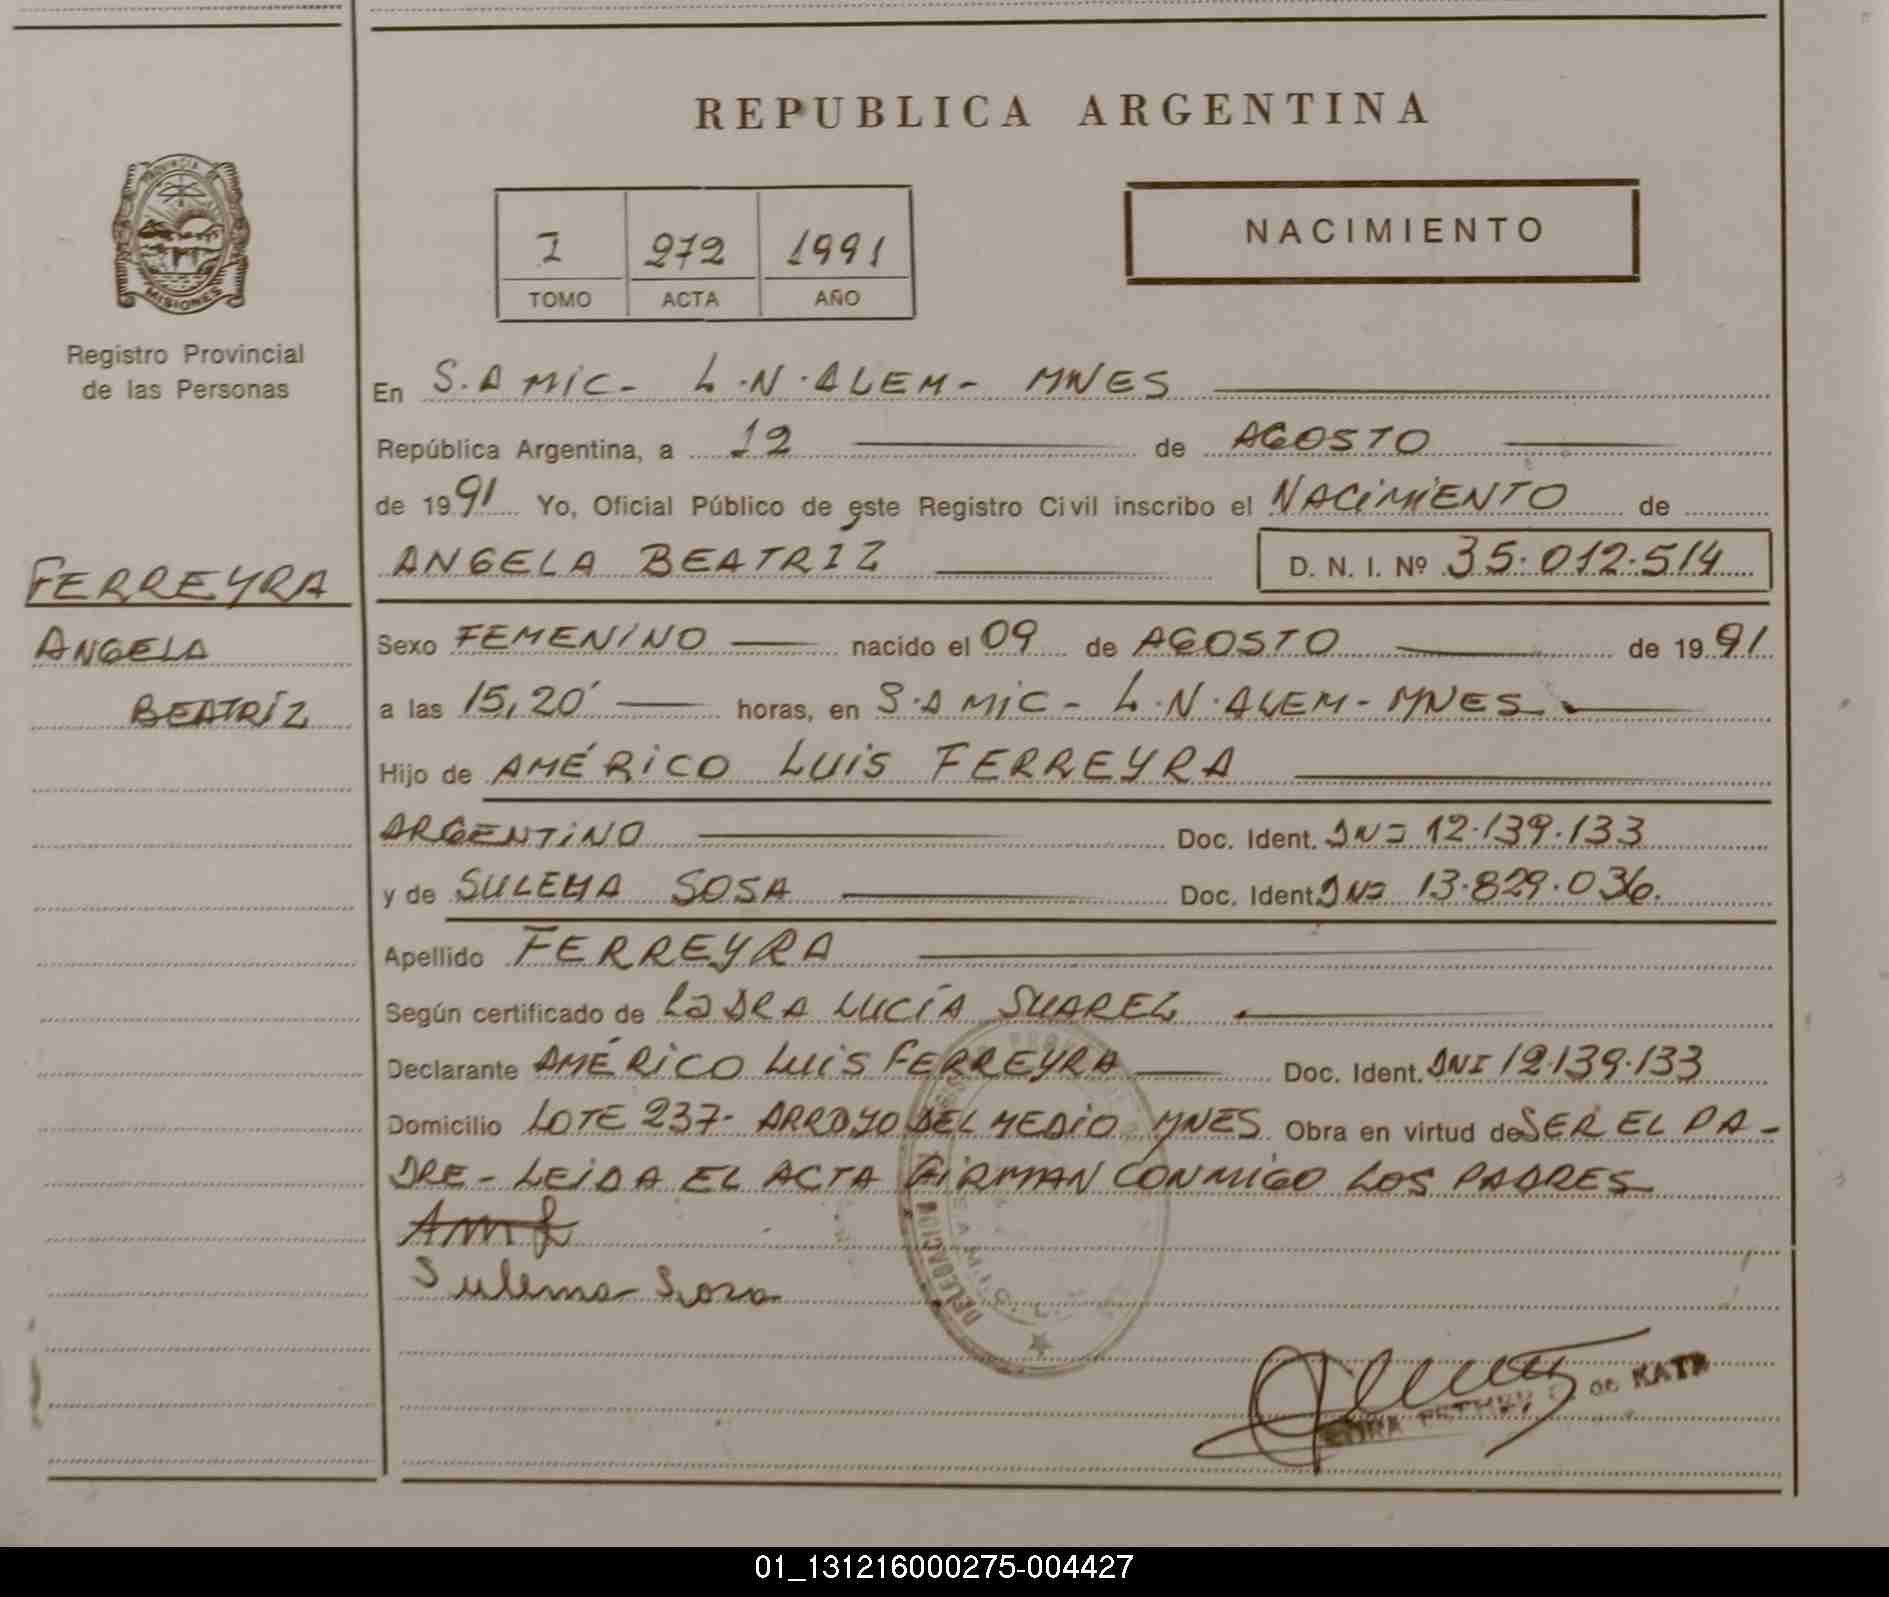 REPUBLICA ARGENTINA
PROVINCIA DE
MISIONES
Registro Provincial
de las Personas
I 272 1991
TOMO ACTA AÑO
NACIMIENTO
En S.A MIC- L.N.ALEM- MNES
República Argentina, a 12 de AGOSTO
de 1991 Yo, Oficial Público de este Registro Civil inscribo el NACIMIENTO de
ANGELA BEATRIZ D. N. I. Nº 35.012.514
FERREYRA
ANGELA
BEATRIZ
Sexo FEMENINO nacido el 09 de AGOSTO de 1991
a las 15,20' horas, en S.A MIC- L.N.ALEM- MNES
Hijo de AMÉRICO LUIS FERREYRA
ARGENTINO Doc. Ident. DNI 12.139.133
y de SULEMA SOSA Doc. Ident. DNI 13.829.036.
Apellido FERREYRA
Según certificado de La DRA LUCÍA SUAREZ
Declarante AMÉRICO LUIS FERREYRA Doc. Ident. DNI 12.139.133
Domicilio LOTE 237- ARROYO DEL MEDIO MNES Obra en virtud de SER EL PA-
DRE- LEIDA EL ACTA FIRMAN CONMIGO LOS PADRES
Sulema Sosa
DELEGACION
de KATZ
01_131216000275-004427